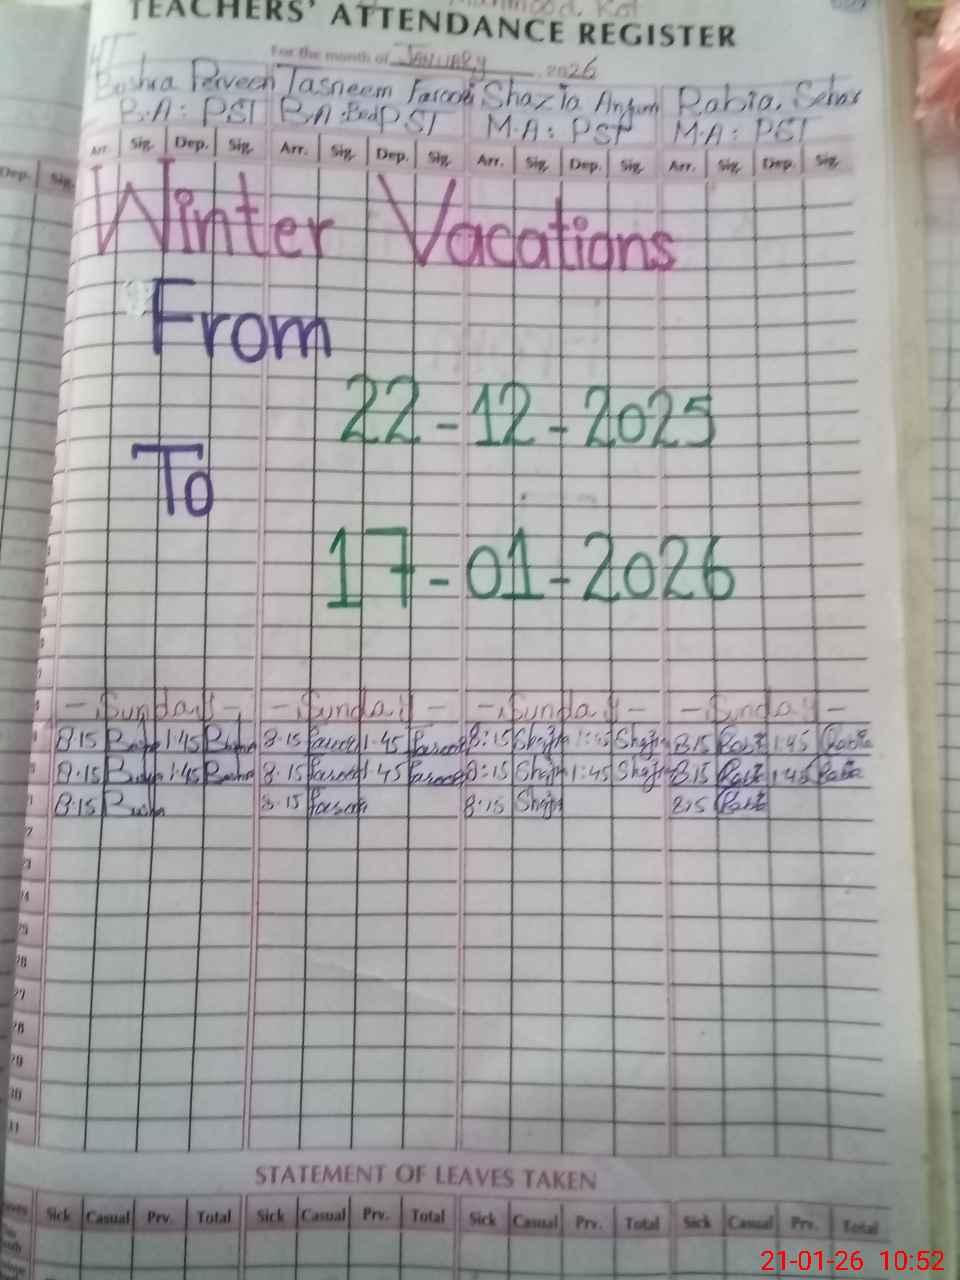 TEACHERS' ATTENDANCE REGISTER
For the month of JANUARY 2026
HT
Bushra Perveen Tasneem Farooqi Shazia Anjum Rabia Sehar
B.A: PST BA:Bed PST M.A: PST M.A: PST
Arr. Sig. Dep. Sig. Arr. Sig. Dep. Sig. Arr. Sig. Dep. Sig. Arr. Sig. Dep. Sig.
Dep. Sig.
Winter Vacations
From
22-12-2025
To
17-01-2026
- Sunday - - Sunday - - Sunday - - Sunday -
8:15 1:45 8:15 1:45 8:15 1:45 8:15 1:45
8:15 1:45 8:15 1:45 8:15 1:45 8:15 1:45
8:15 8:15 8:15 8:15
27
28
29
30
31
STATEMENT OF LEAVES TAKEN
Sick Casual Prv. Total Sick Casual Prv. Total Sick Casual Prv. Total Sick Casual Prv. Total
21-01-26 10:52